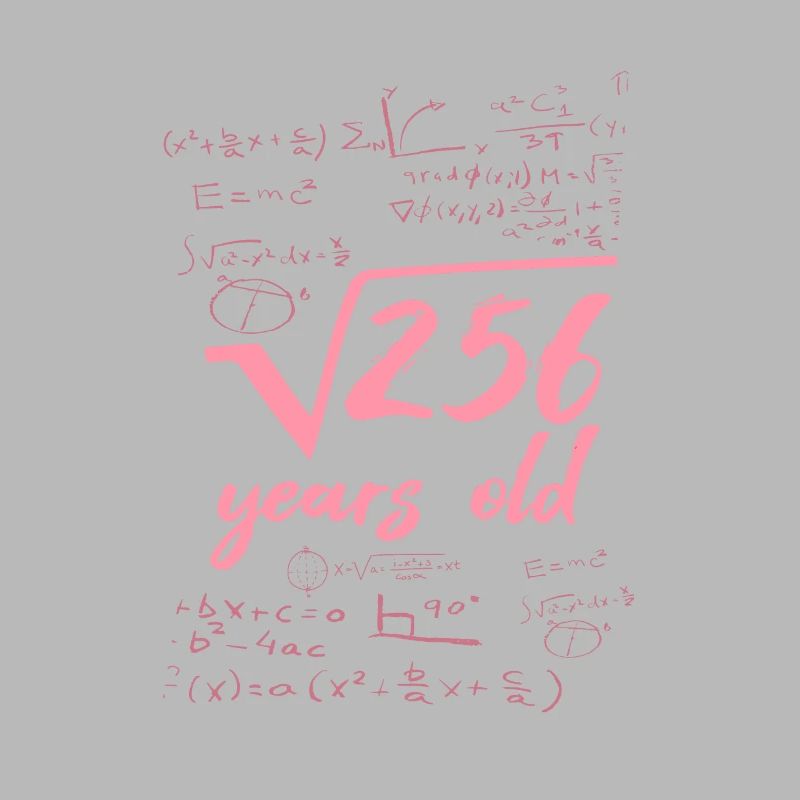 (x²+b/a x+c/a) Σ_N Y X
a²C₁³/3T (Y,
E=mc²
grad φ(x;1) M=√3
∇φ(x,y,2)=∂φ/∂d 1+
a²
∫√a²-x² dx=x/2
a B
√256
years old
X=√a=1-x²+3/cosα=xt
E=mc²
+bx+c=0
90°
∫√a²-x² dx=x/2
a B
b²-4ac
(x)=a(x²+b/a x+c/a)